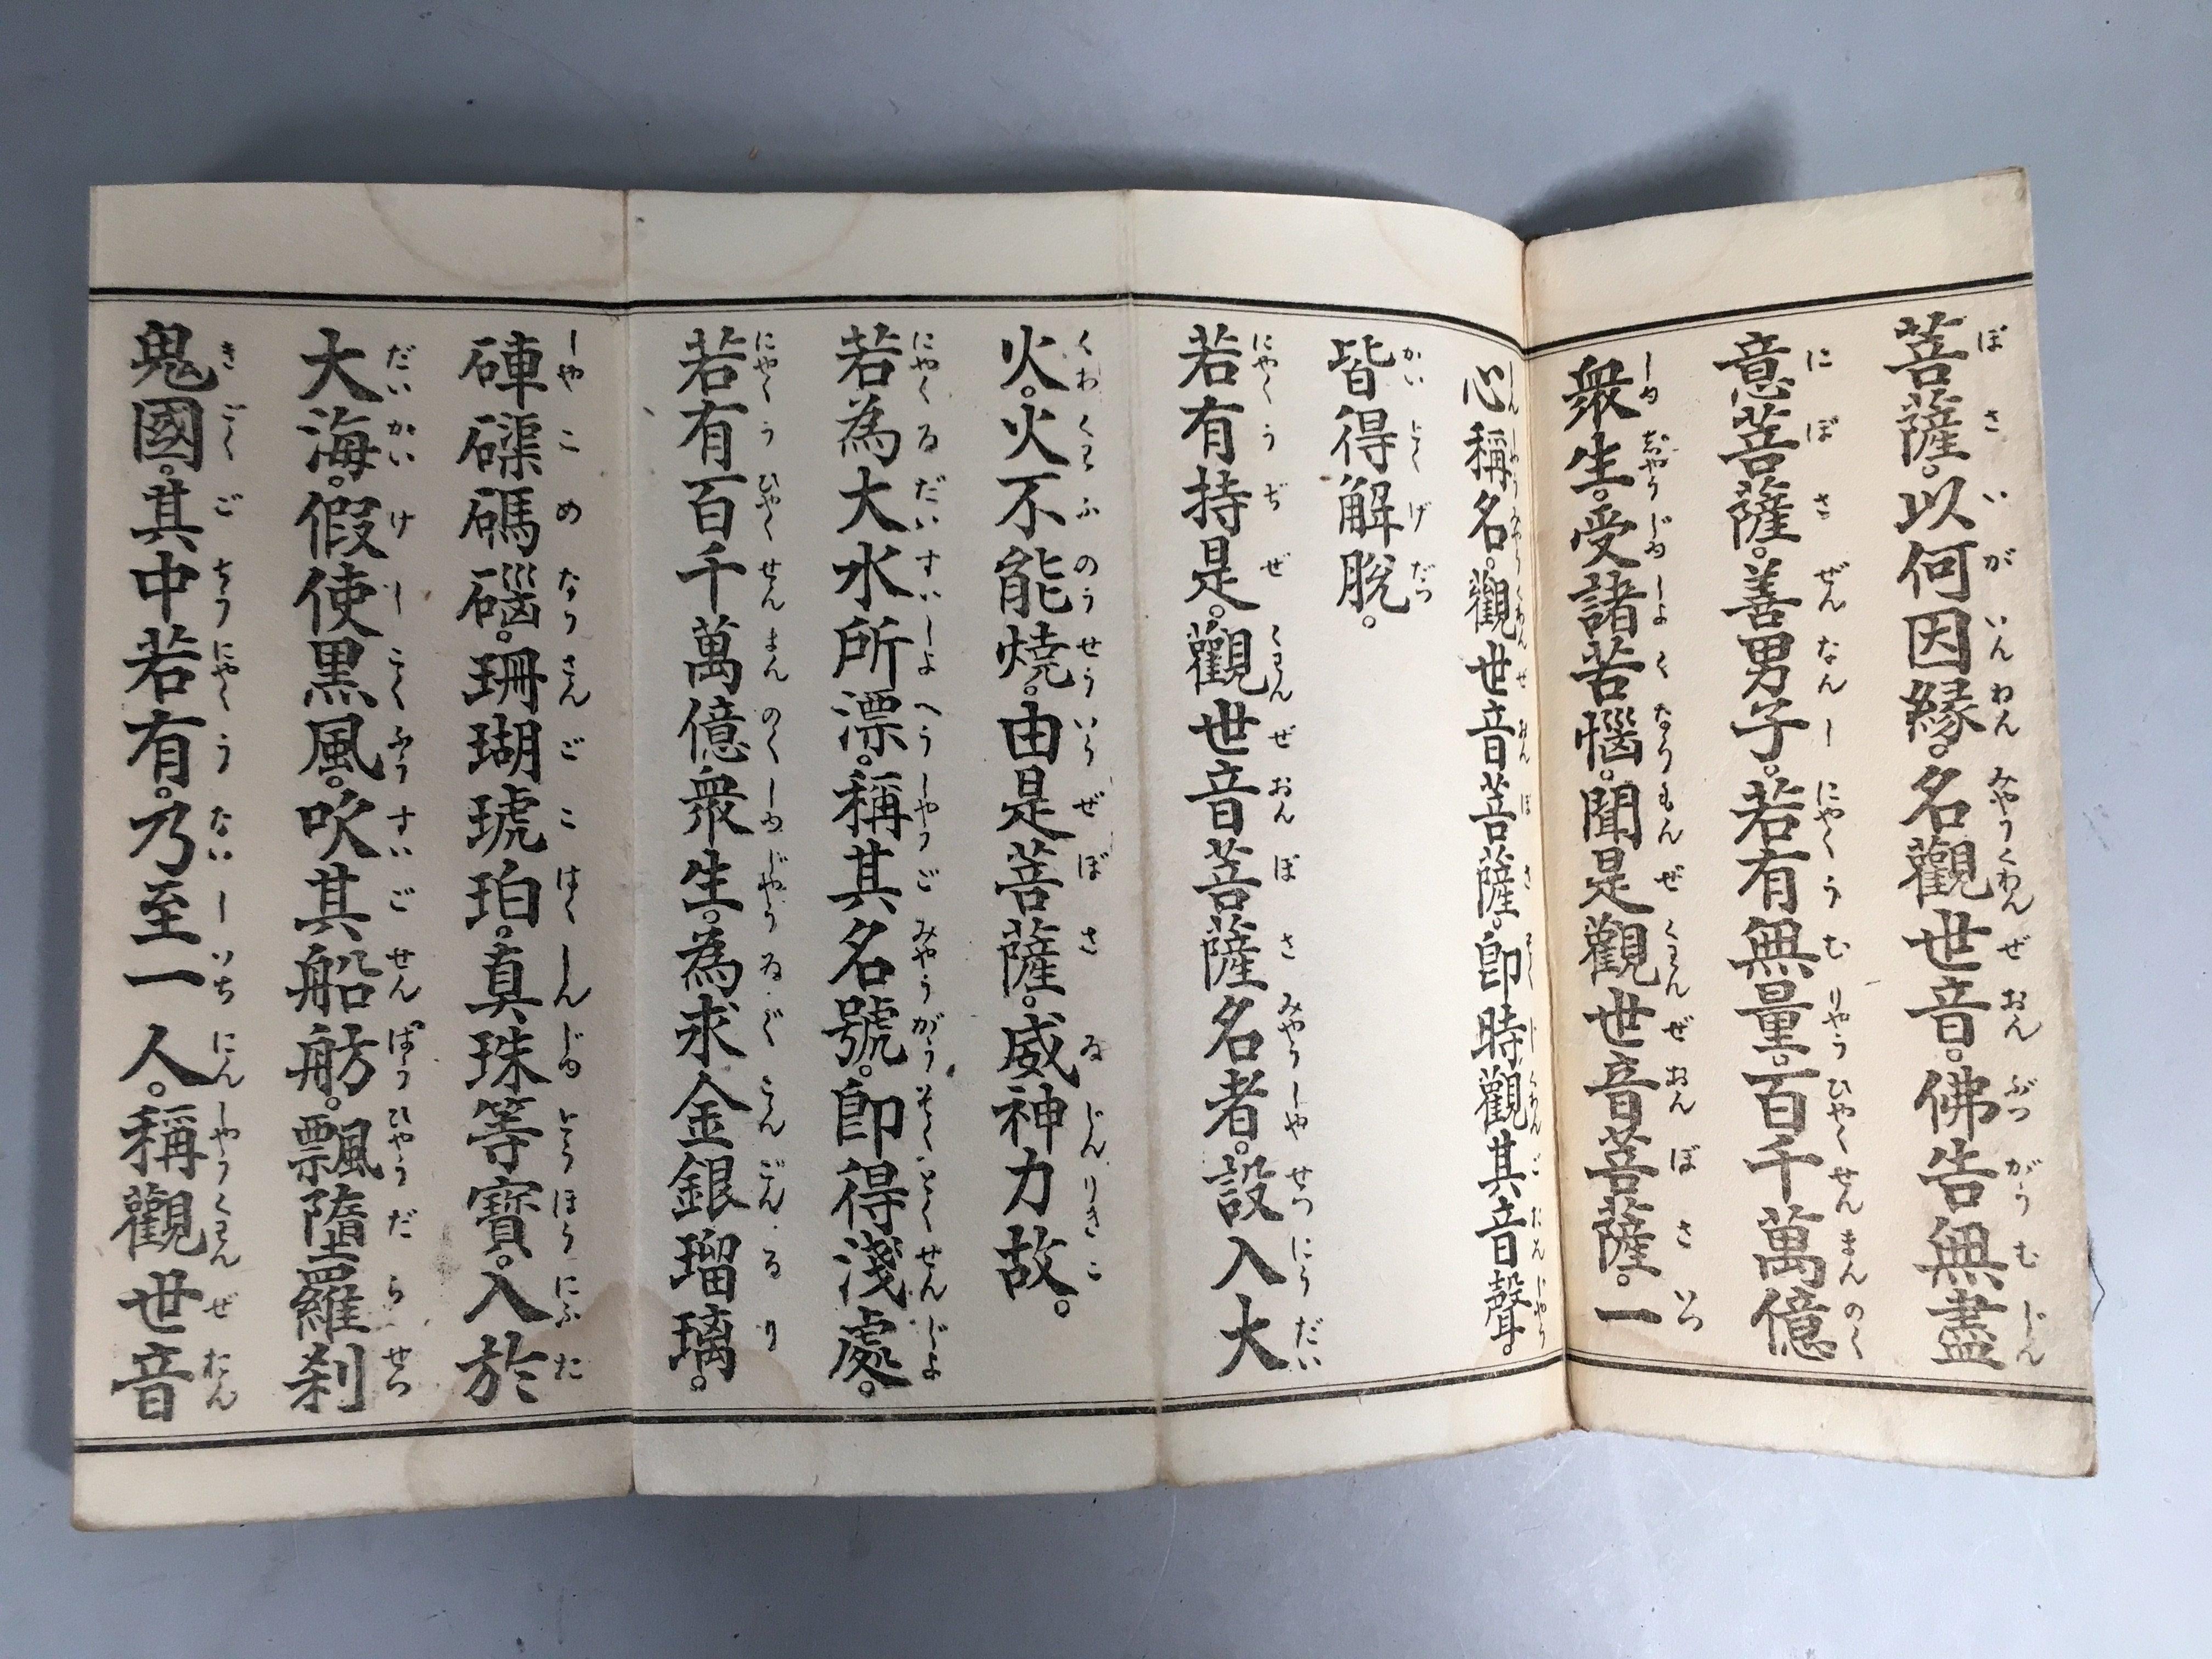 菩薩。以何因縁。名觀世音。佛告無盡
意菩薩。善男子。若有無量。百千萬億
衆生。受諸苦惱。聞是觀世音菩薩。一
心稱名。觀世音菩薩。即時觀其音聲。
皆得解脱。
若有持是。觀世音菩薩名者。設入大
火。火不能燒。由是菩薩。威神力故。
若為大水所漂。稱其名號。即得淺處。
若有百千萬億衆生。為求金銀瑠璃。
硨磲碼碯。珊瑚琥珀。真珠等寶。入於
大海。假使黒風。吹其船舫。飄墮羅刹
鬼國。其中若有。乃至一人。稱觀世音